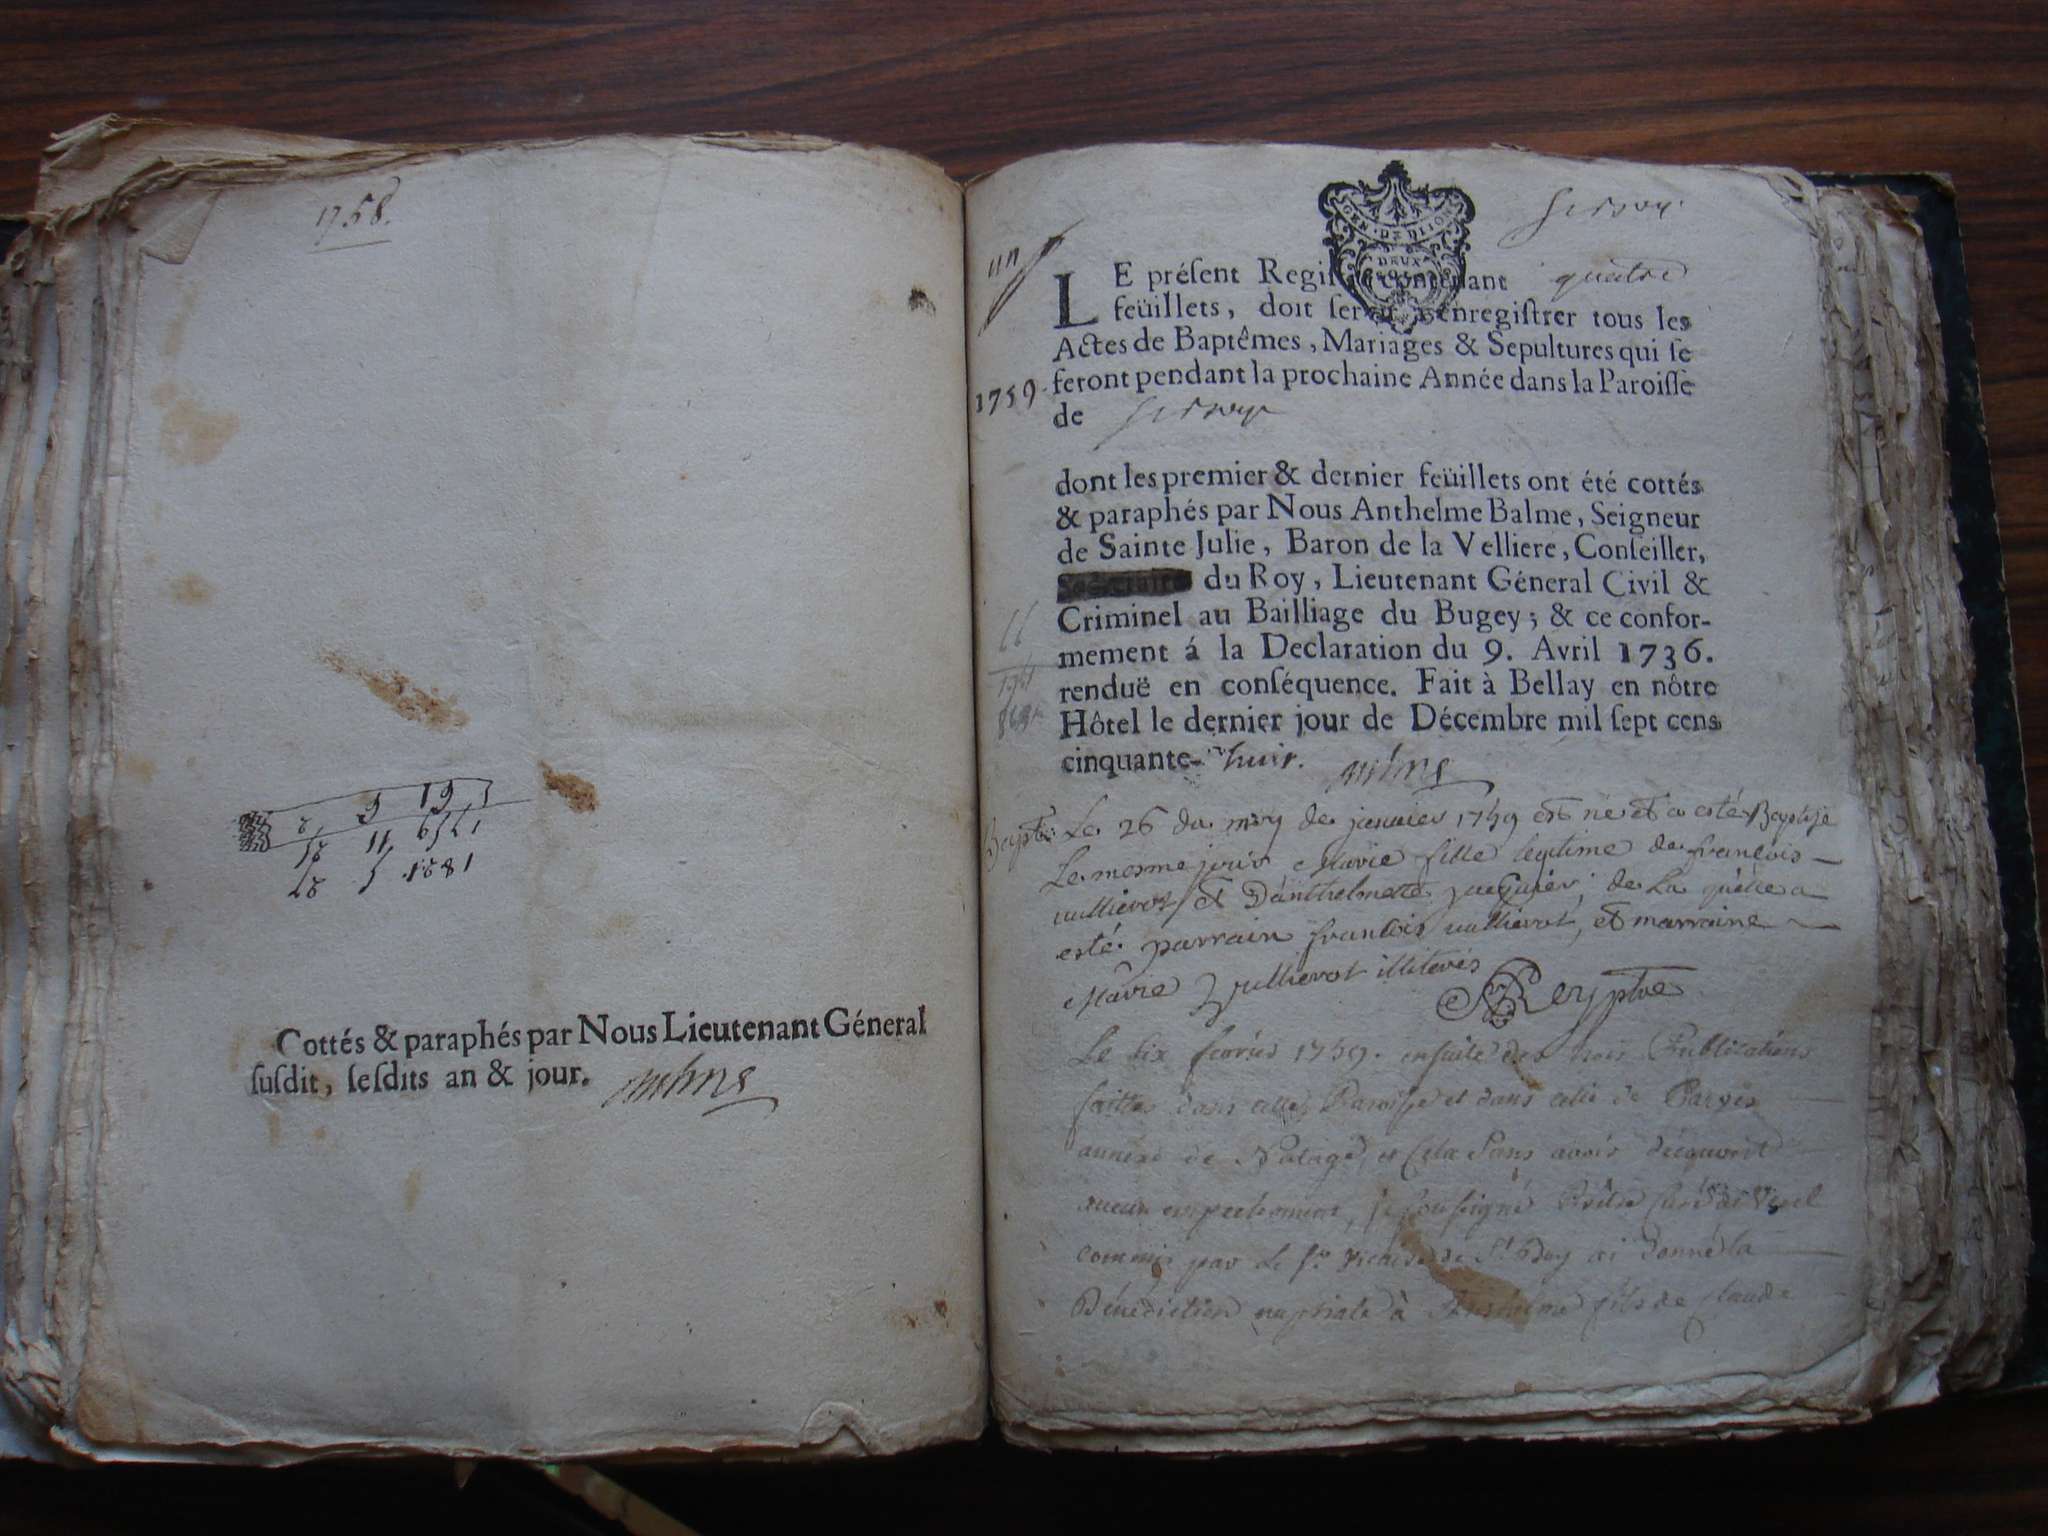 1758.
Cottés & paraphés par Nous Lieutenant Géneral
susdit, sesdits an & jour.
un
GEN. DE DIION
DEUX
LE présent Regis contenant quatre
feüillets, doit servir à enregistrer tous les
Actes de Baptêmes, Mariages & Sepultures qui se
1759. feront pendant la prochaine Année dans la Paroisse
de
dont les premier & dernier feüillets ont été cottés
& paraphés par Nous Anthelme Balme, Seigneur
de Sainte Julie, Baron de la Velliere, Conseiller,
du Roy, Lieutenant Géneral Civil &
Criminel au Bailliage du Bugey; & ce confor-
mement á la Declaration du 9. Avril 1736.
renduë en conséquence. Fait à Bellay en nôtre
Hôtel le dernier jour de Décembre mil sept cens
cinquante-huit.
Bapt. Le 26 du moy de janvier 1759 est né et a esté Baptisé
Le mesme jour Marie fille legitime de francois
vullierot et D'anthelmette de La quelle a
esté parrain francois vullierot, et marraine
Marie vullierot illiterés
Le six fevrier 1759. ensuite des trois Publications
faittes dans cette Paroisse et dans celle de Parves
annexe de Nattage, et cela sans avoir découvert
aucun empechement, je soussigné Prêtre Curé de
commis par le Sr. vicaire de St Boy ai donné la
Bénédiction nuptiale à Anthelme fils de Claude